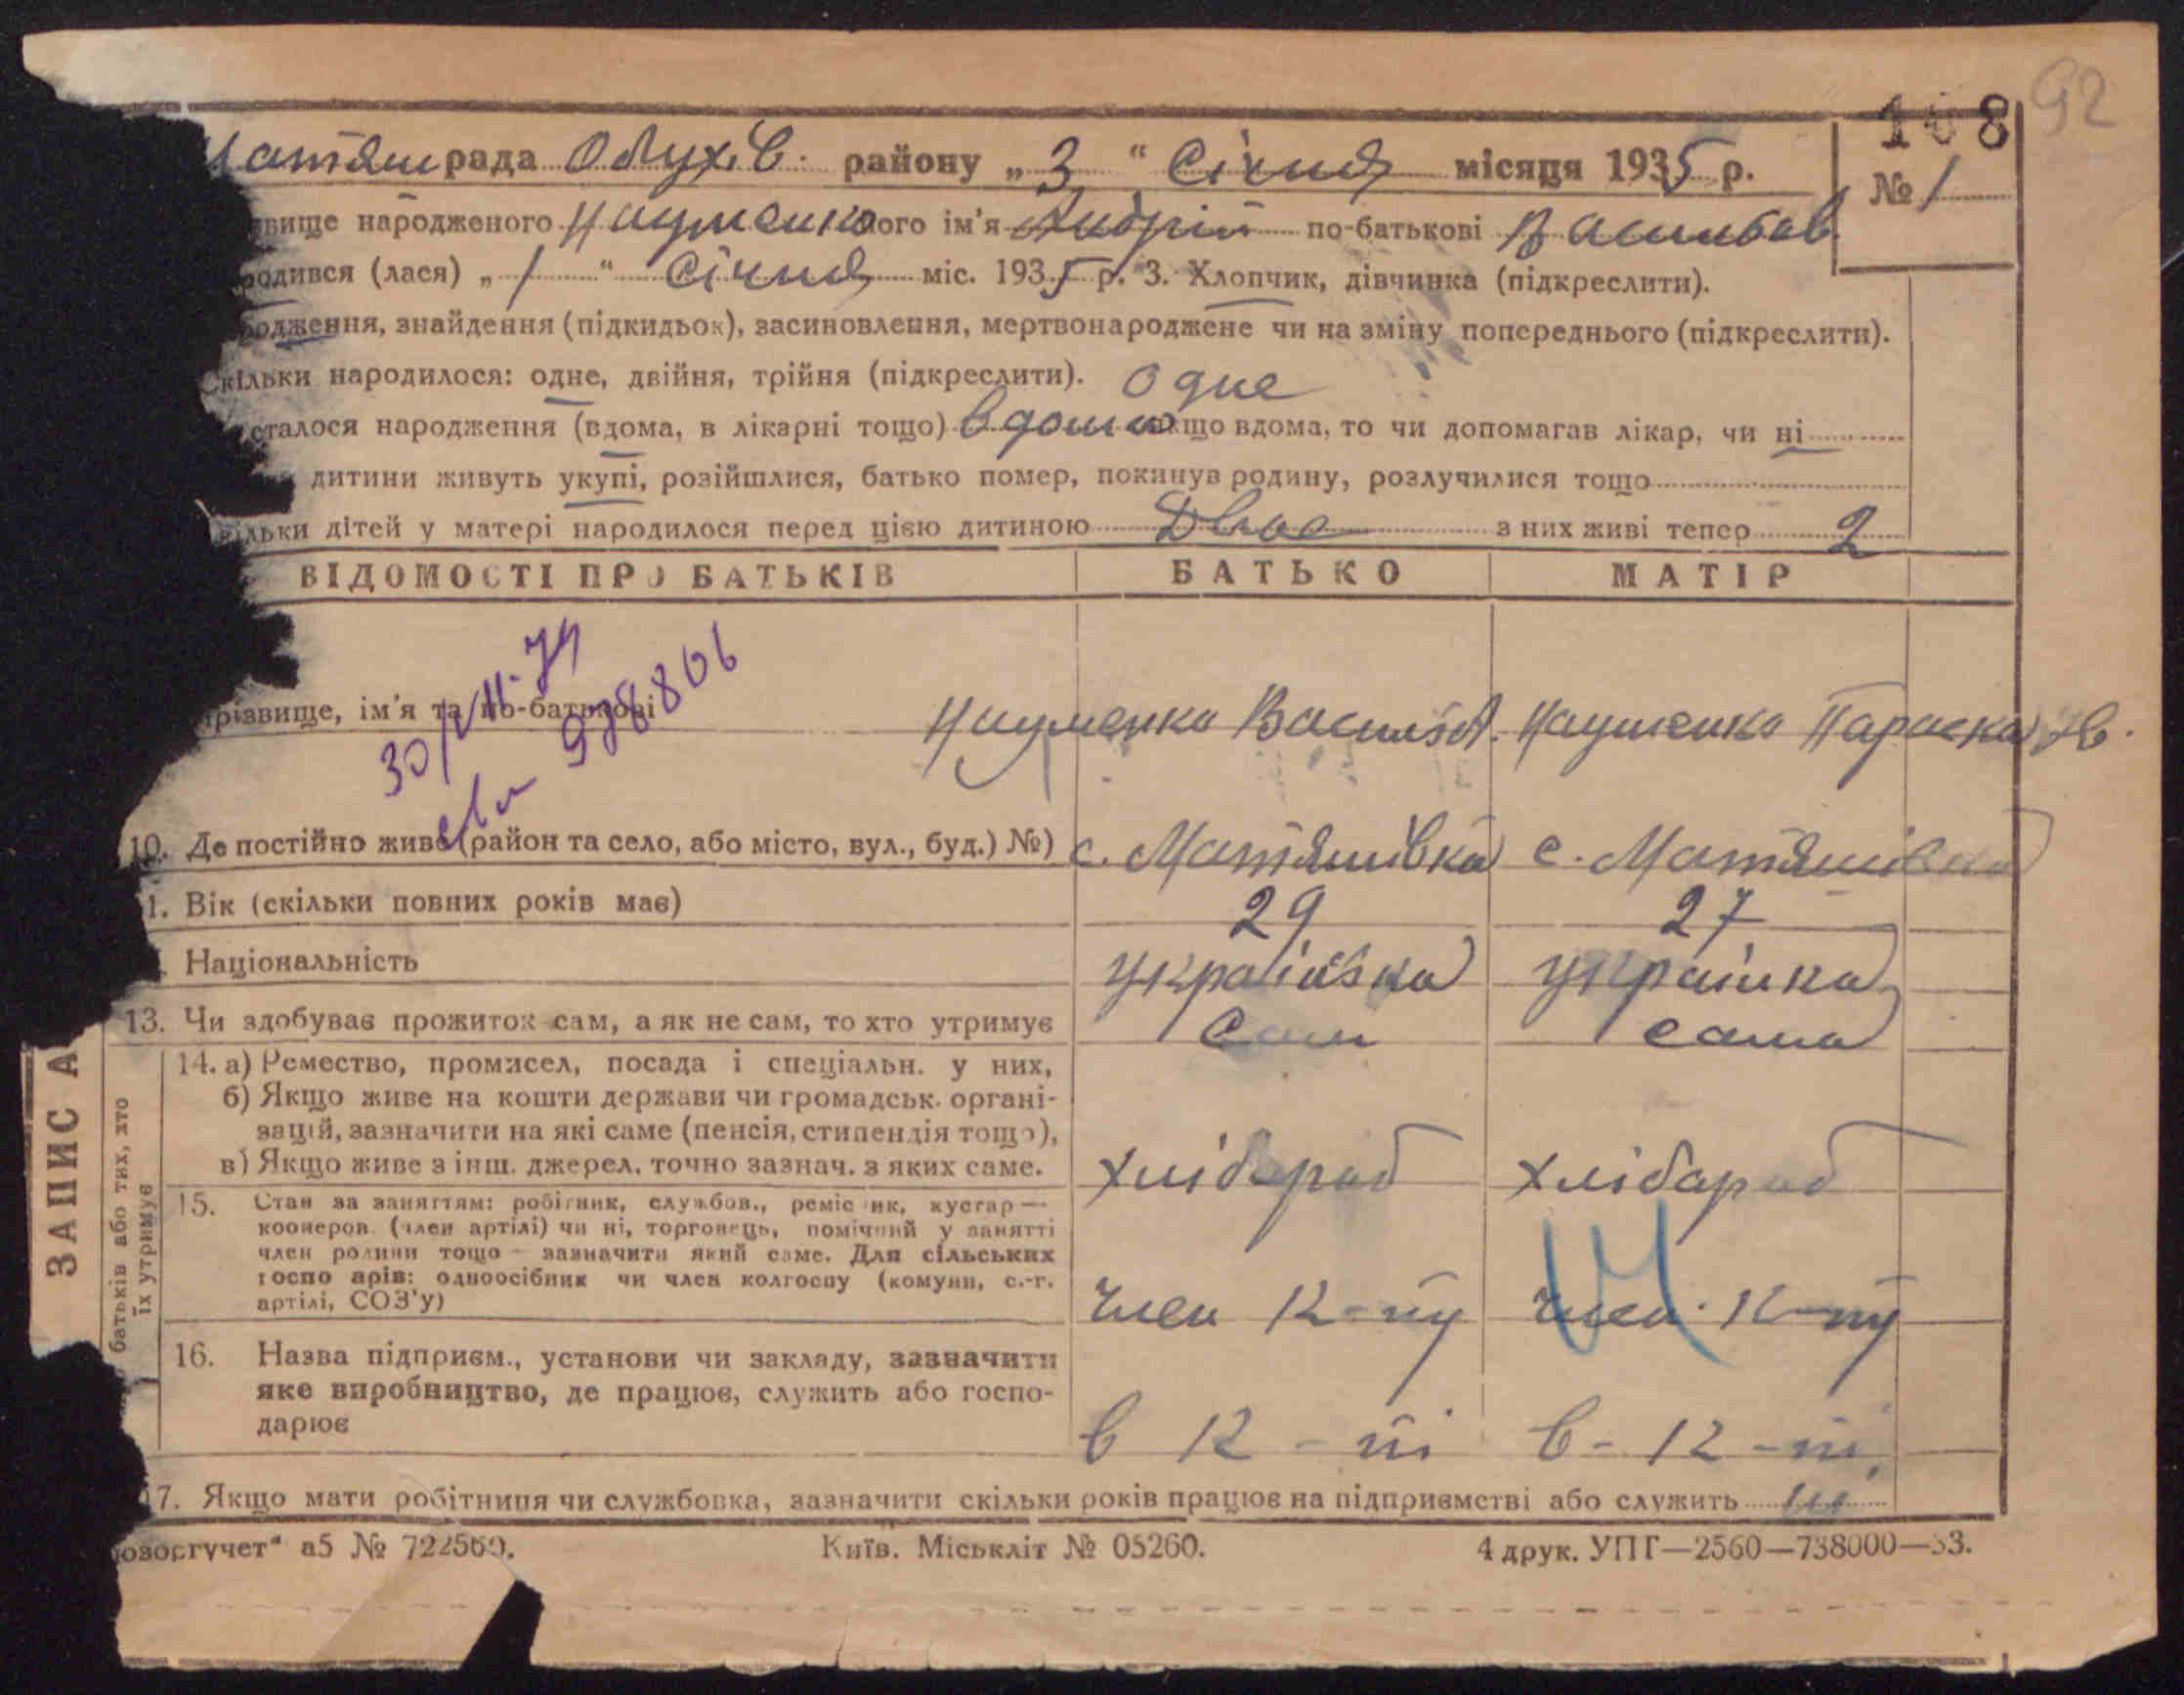 92
108
Матяш рада Обухів. району „3“ Січня місяця 1935 р.
№ 1
звище народженого Науменко його ім'я Андрій по-батькові Васильов.
родився (лася) „1“ Січня міс. 1935 р. 3. Хлопчик, дівчинка (підкреслити).
родження, знайдення (підкидьок), засиновлення, мертвонароджене чи на зміну попереднього (підкреслити).
Скільки народилося: одне, двійня, трійня (підкреслити). Одне
сталося народження (вдома, в лікарні тощо) вдома якщо вдома, то чи допомагав лікар, чи ні
дитини живуть укупі, розійшлися, батько помер, покинув родину, розлучилися тощо
кільки дітей у матері народилося перед цією дитиною Двое з них живі тепер 2
ВІДОМОСТІ ПРО БАТЬКІВ БАТЬКО МАТІР
30/VII-74
978806
прізвище, ім'я та по-батькові Науменко Василь А. Науменко Параска
10. Де постійно живе (район та село, або місто, вул., буд.) №) с. Матяшівка с. Матяшівка
11. Вік (скільки повних років має) 29 27
Національність українка українка
13. Чи здобуває прожиток сам, а як не сам, то хто утримує Сам сама
ЗАПИС А
батьків або тих, хто
їх утримує
14. а) Ремество, промисел, посада і спеціальн. у них,
б) Якщо живе на кошти держави чи громадськ. органі-
зацій, зазначити на які саме (пенсія, стипендія тощо),
в) Якщо живе з інш. джерел, точно зазнач. з яких саме. хлібароб хлібароб
15. Стан за заняттям: робітник, службов., ремісник, кустар —
кооперов. (член артілі) чи ні, торговець, помічний у занятті
член родини тощо — зазначити який саме. Для сільських
господарів: одноосібник чи член колгоспу (комуни, с.-г.
артілі, СОЗ'у) член к-пу член к-пу
16. Назва підприєм., установи чи закладу, зазначити
яке виробництво, де працює, служить або госпо-
дарює в к-пі в- к-пі
17. Якщо мати робітниця чи службовка, зазначити скільки років працює на підприємстві або служить
юзоргучет“ а5 № 722560. Київ. Міськліт № 05260. 4 друк. УПГ—2560—738000—33.